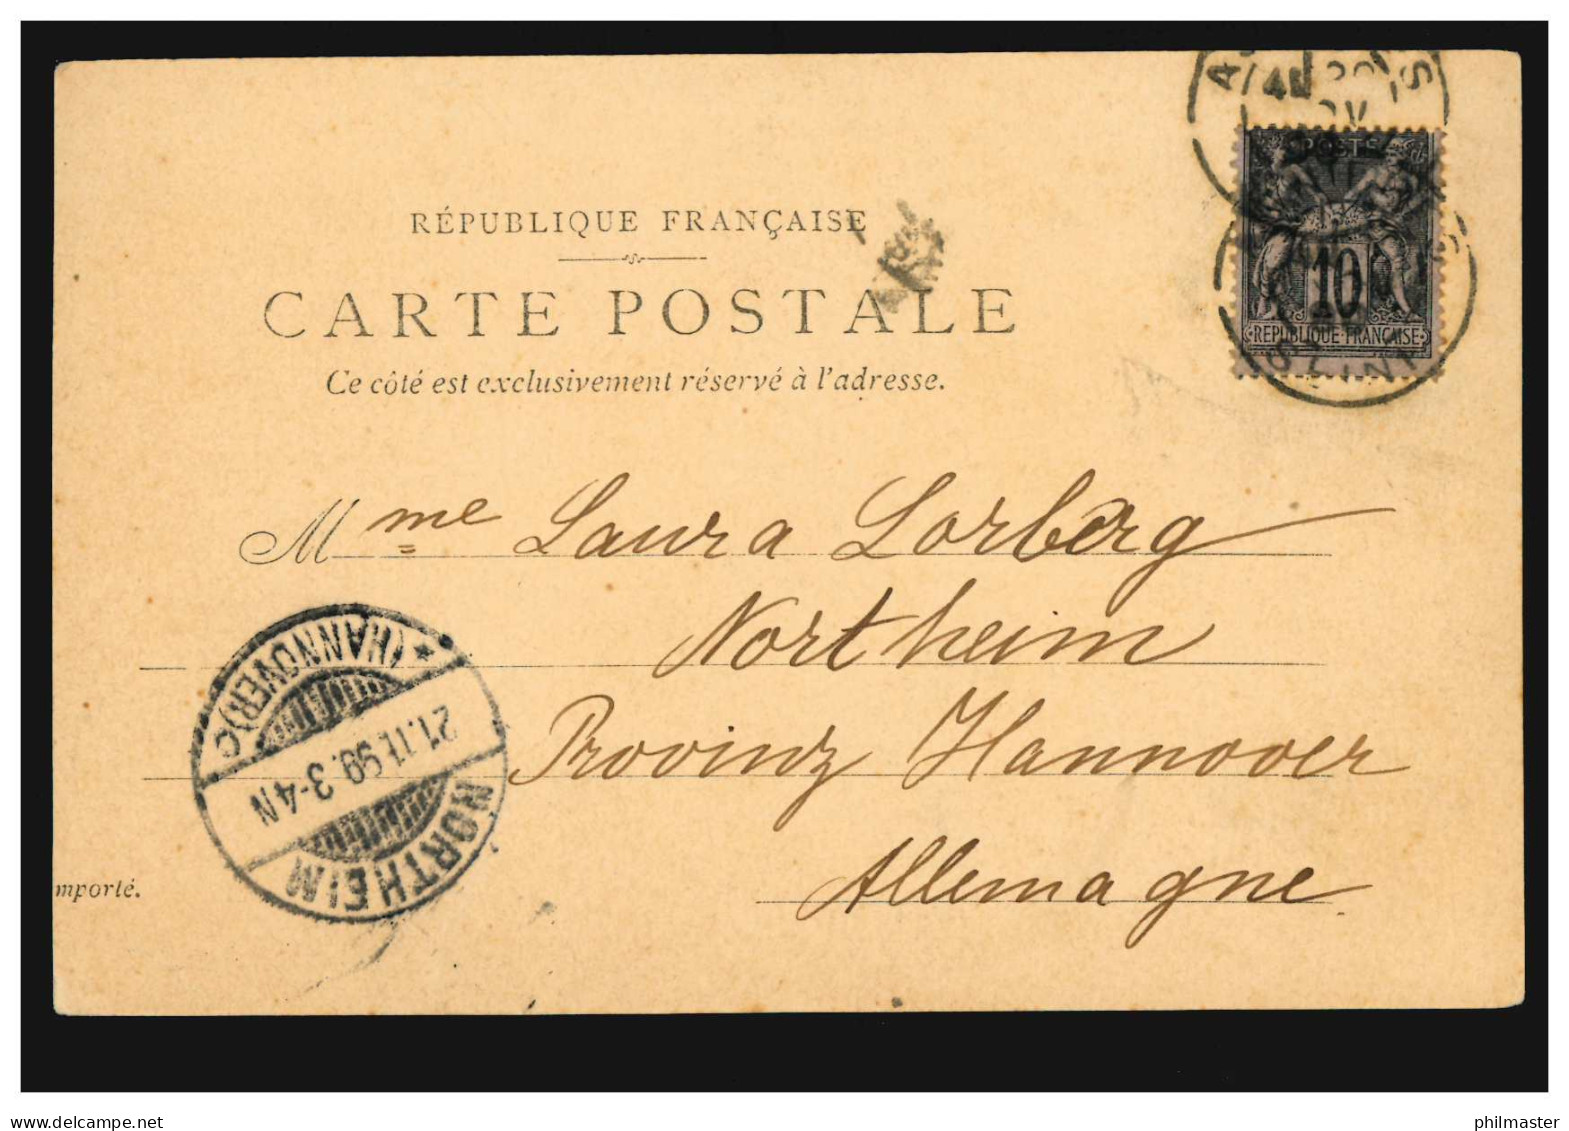 POSTE
10
REPUBLIQUE FRANÇAISE
RÉPUBLIQUE FRANÇAISE
CARTE POSTALE
Ce côté est exclusivement réservé à l'adresse.
Mme Laura Lorberg
Northeim
Provinz Hannover
Allemagne
NORTHEIM
21.11.99. 3-4N
* (HANNOVER) C
mporté.
www.delcampe.net
philmaster